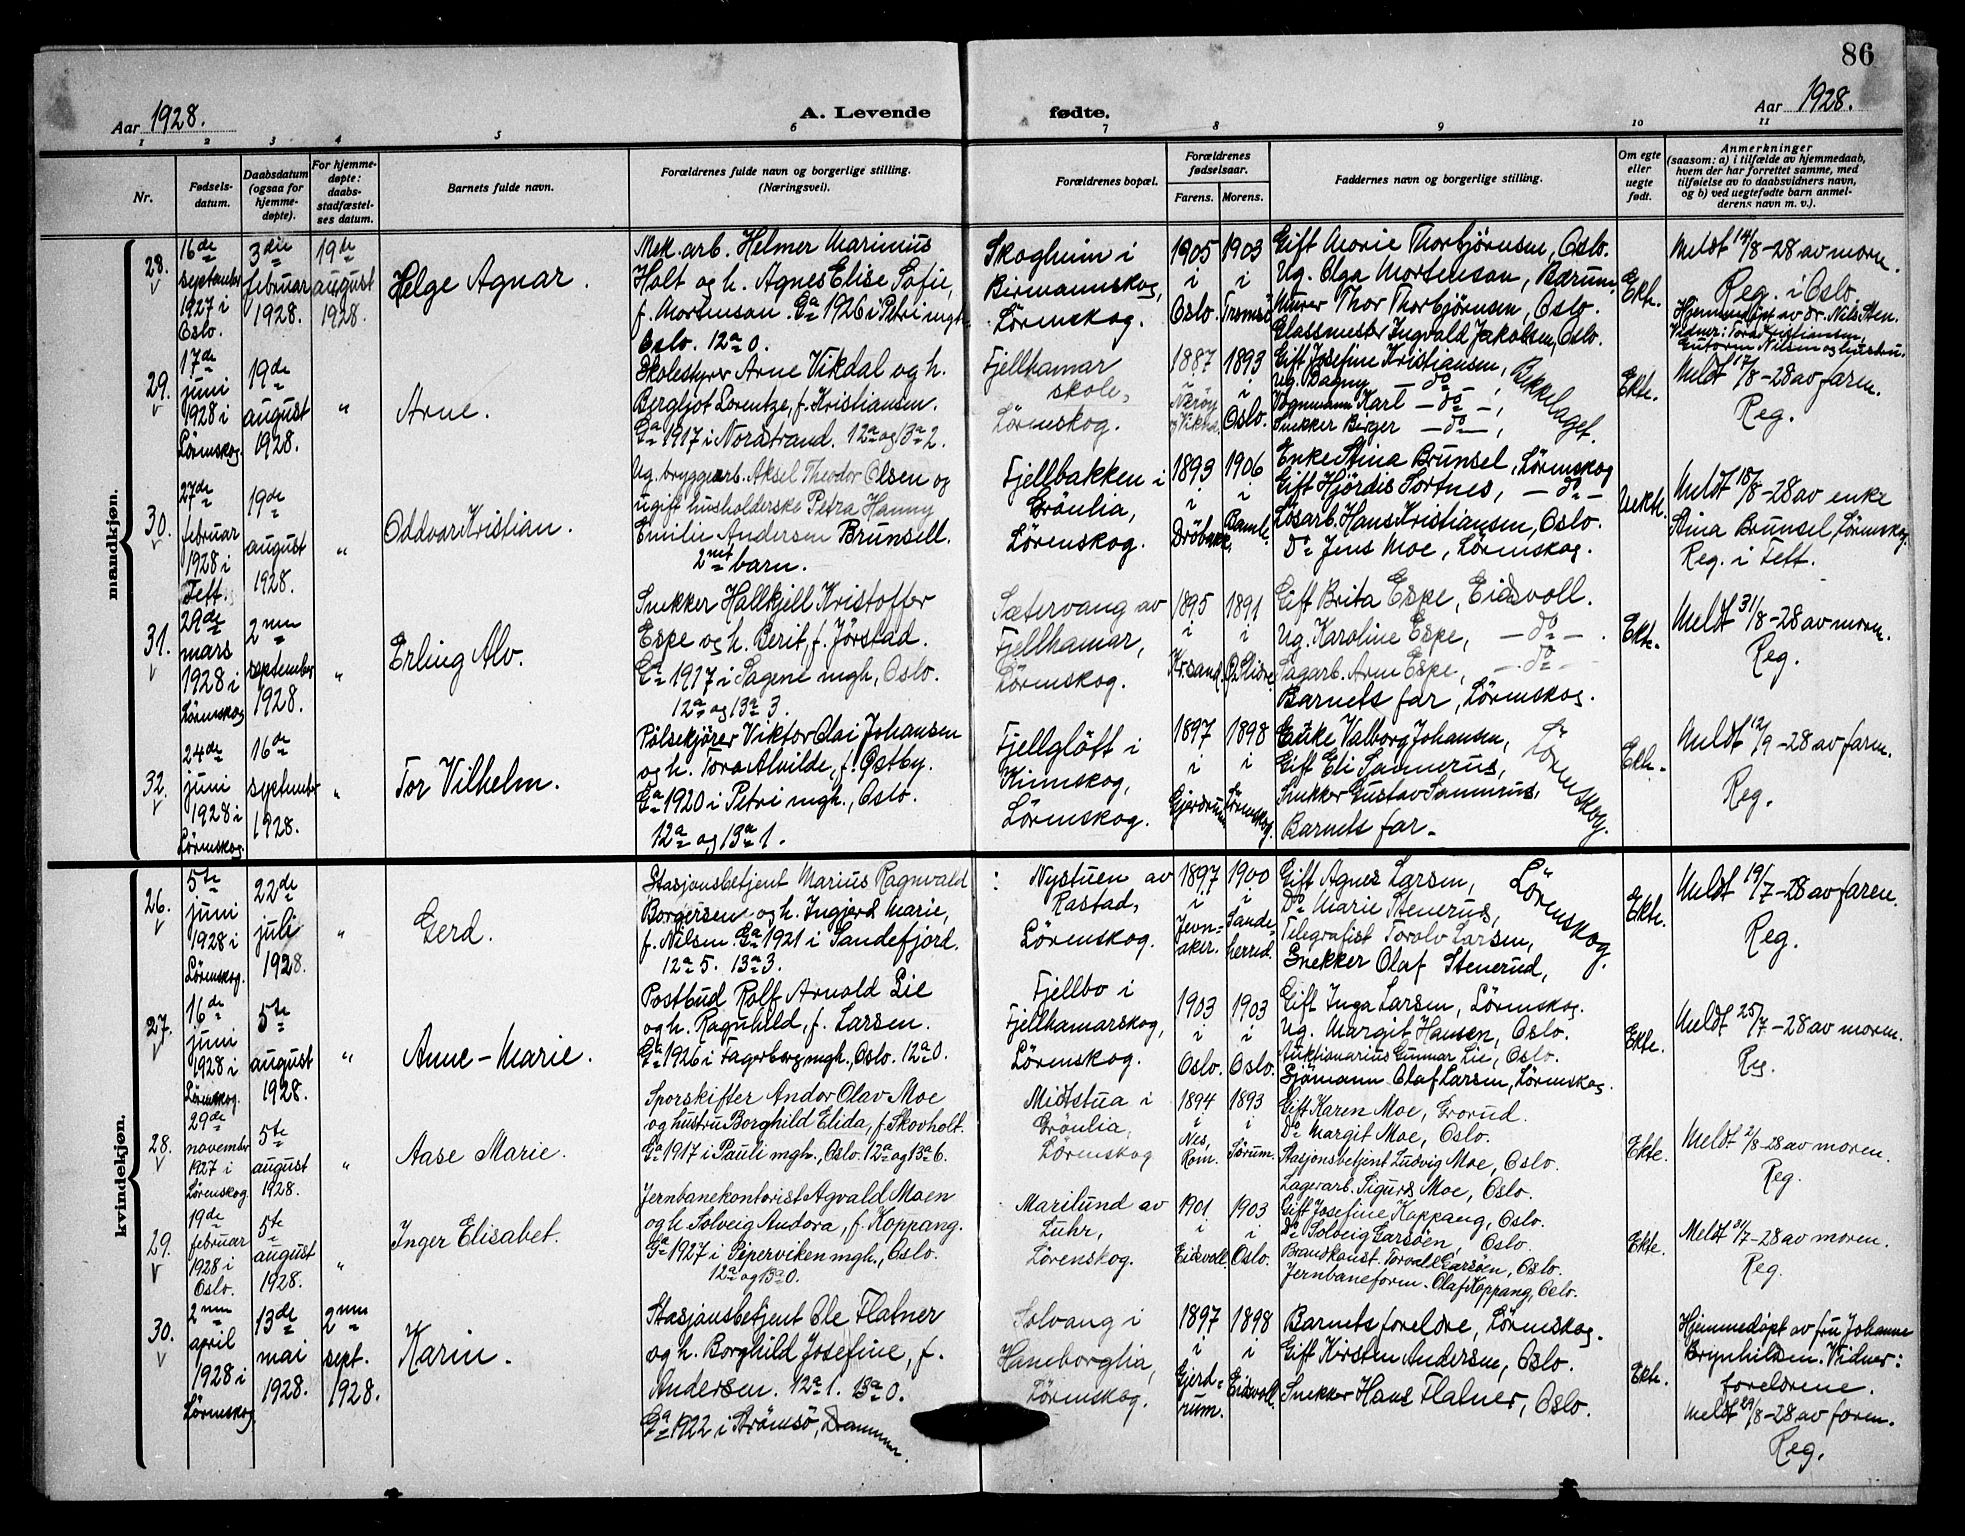 86
Aar 1928.
A. Levende fødte.
Aar 1928.
1 2 3 4 5 6 7 8 9 10 11
Nr.
Fødsels-
datum.
Daabsdatum
(ogsaa for
hjemme-
døpte).
For hjemme-
døpte:
daabs-
stadfæstel-
ses datum.
Barnets fulde navn.
Forældrenes fulde navn og borgerlige stilling.
(Næringsvei).
Forældrenes bopæl.
Forældrenes
fødselsaar.
Farens. Morens.
Faddernes navn og borgerlige stilling.
Om egte
eller
uegte
født.
Anmerkninger
(saasom: a) i tilfælde av hjemmedaab,
hvem der har forrettet samme, med
tilføielse av to daabsvidners navn,
og b) ved uegtefødte barn anmel-
derens navn m. v.).
mandkjøn.
28.
16de
september
1927 i
Oslo.
3die
februar
1928.
19de
august
1928.
Helge Agnar.
Mek. arb. Helmer Marinius
Holt og h. Agnes Elise Sofie,
f. Mortenson. Ga 1926 i Petri mgh.
Oslo. 12a 0.
Skogheim i
Birmannskog,
Lörenskog.
1905
i
Oslo.
1903
i
Tromsö
Gift Marie Thorbjörnsen, Oslo.
Ug. Olga Mortenson, Bærum.
Murer Thor Thorbjörnsen, Oslo.
Glassmester Ingvald Jakobsen, Oslo.
Ekte.
Meldt 14/8-28 av moren.
Reg. i Oslo.
Hjemmedöpt av Dr. Nils Sten.
Vidner: Tora Kristiansen,
Gutorm Nilsen og hustru.
29.
17de
juni
1928 i
Lörenskog
19de
august
1928.
"
Arne.
Skolestyrer Arne Vikdal og h.
Bergljot Lorentze, f. Kristiansen.
Ga 1917 i Nordstrand. 12a og 13a 2.
Fjellhamar
skole,
Lörenskog.
1887
i
Næröy
1893
i
Oslo.
Gift Josefine Kristiansen,
Ug. Dagny — do —,
Vognmann Karl — do —,
Snekker Birger — do —,
Bekkelaget.
Ekte.
Meldt 17/8-28 av faren.
Reg.
30.
27de
februar
1928 i
Fett.
19de
august
1928.
"
Oddvar Kristian.
Ug. bryggearb. Aksel Theodor Olsen og
ugift husholderske Petra Hanny
Emilie Andersen Brunsell.
2net barn.
Fjellbakken i
Grönlia,
Lörenskog.
1893
i
Dröbakk.
1906
i
Bamle.
Enke Stina Brunsel, Lörenskog
Gift Hjördis Sortnes, — do —
Lösarb. Hans Kristiansen, Oslo.
Do Jens Moe, Lörenskog.
Uekte.
Meldt 18/8-28 av enke
Stina Brunsel, Lörenskog.
Reg. i Fett.
31.
29de
mars
1928 i
Lörenskog
2nen
september
1928.
"
Erling Alv.
Snekker Hallkjell Kristoffer
Espe og h. Berit, f. Jörstad.
Ga 1917 i Sagene mgh, Oslo.
12a og 13a 3.
Sætervang av
Fjellhamar,
Lörenskog.
1895
i
Kr.sand.
1891
i
Ö. Slidre.
Gift Brita Espe, Eidsvoll.
Ug. Karoline Espe, — do —.
Sagarb. Arne Espe, — do —
Barnets far, Lörenskog.
Ekte.
Meldt 31/8-28 av moren.
Reg.
32.
24de
juni
1928 i
Lörenskog.
16de
september
1928.
"
Tor Vilhelm.
Pölsekjörer Viktor Olai Johansen
og h. Tora Alvilde, f. Östby.
Ga 1920 i Petri mgh., Oslo.
12a og 13a 1.
Fjellglött i
Kinnskog,
Lörenskog.
1897
i
Gjerdrum
1898
i
Lörenskog.
Enke Valborg Johansen,
Gift Eli Sannerus,
Snekker Gustav Sannerus,
Barnets far.
Lörenskog.
Ekte.
Meldt 12/9-28 av faren.
Reg.
kvindekjøn.
26.
5te
juni
1928 i
Lörenskog.
22de
juli
1928.
"
Gerd.
Stasjonsbetjent Marius Ragnvald
Borgersen og h. Ingjerd Marie,
f. Nilsen. Ga 1921 i Sandefjord.
12a 5. 13a 3.
Nystuen av
Rastad,
Lörenskog.
1897
i
Jevn-
aker.
1900
i
Sande-
herred.
Gift Agnes Larsen,
Do Marie Stenerud,
Telegrafist Torolv Larsen,
Snekker Olaf Stenerud,
Lörenskog.
Ekte.
Meldt 19/7-28 av faren.
Reg.
27.
16de
juni
1928 i
Lörenskog.
5te
august
1928.
"
Anne-Marie.
Postbud Rolf Arnold Lie
og h. Ragnhild, f. Larsen.
Ga 1926 i Fagerborg mgh., Oslo. 12a 0.
Fjellbo i
Fjellhamarskog,
Lörenskog.
1903
i
Oslo.
1903
i
Oslo.
Gift Inga Larsen, Lörenskog.
Ug. Margit Hansen, Oslo.
Auktionarius Gunnar Lie, Oslo.
Sjömann Olaf Larsen, Lörenskog.
Ekte.
Meldt 25/7-28 av moren.
Reg.
28.
29de
november
1927 i
Lörenskog.
5te
august
1928.
"
Aase Marie.
Sporskifter Andor Olav Moe
og hustru Borghild Elida, f. Skovholt.
Ga 1917 i Pauli mgh., Oslo. 12a og 13a 6.
Midtstua i
Grönlia,
Lörenskog
1894
i
Nes,
Rom.
1893
i
Sörum.
Gift Karen Moe, Grorud.
Do Margit Moe, Oslo.
Stasjonsbetjent Ludvig Moe, Oslo.
Lagerarb. Sigurd Moe, Oslo.
Ekte.
Meldt 2/8-28 av moren.
Reg.
29.
19de
februar
1928 i
Oslo.
5te
august
1928.
"
Inger Elisabet.
Jernbanekontorist Agvald Moen
og h. Solveig Andora, f. Koppang.
Ga 1927 i Piperviken mgh., Oslo.
12a og 13a 0.
Marilund av
Luhr,
Lörenskog.
1901
i
Eidsvoll
1903
i
Oslo.
Gift Josefine Koppang, Oslo.
Do Solveig Garsöen, Oslo.
Brandkonst. Torvald Garsöen, Oslo.
Jernbaneform. Olaf Koppang, Oslo.
Ekte.
Meldt 31/7-28 av moren.
Reg.
30.
2nen
april
1928 i
Lörenskog
13de
mai
1928.
2nen
sept.
1928.
Karin.
Stasjonsbetjent Ole Flatner
og h. Borghild Josefine, f.
Andersen. 12a 1. 13a 0.
Ga 1922 i Strömsö, Drammen.
Solvang i
Haneborglia,
Lörenskog.
1897
i
Gjerd-
rum.
1898
i
Eidsvoll
Barnets foreldre, Lörenskog.
Gift Kirsten Andersen, Oslo.
Snekker Hans Flatner, Oslo.
Ekte.
Hjemmedöpt av fru Johanne
Brynhildsen. Vidner:
foreldrene.
Meldt 29/8-28 av faren.
Reg.